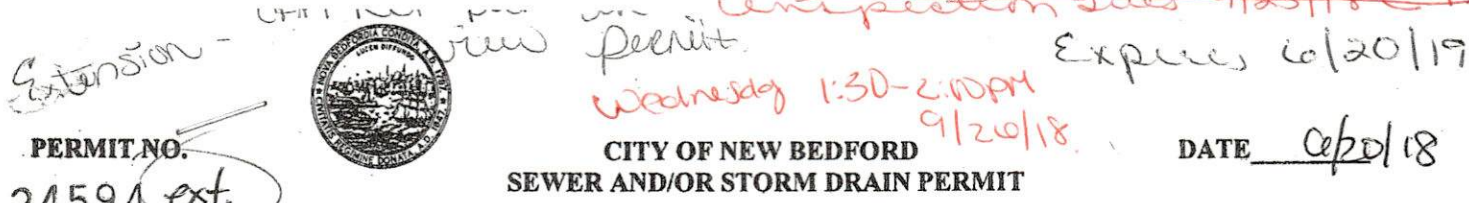 Extension - view permit.
Expires 6/20/19
Wednesday 1:30-2:00pm
9/26/18
PERMIT NO.
24594 ext.
CITY OF NEW BEDFORD
SEWER AND/OR STORM DRAIN PERMIT
DATE 6/20/18